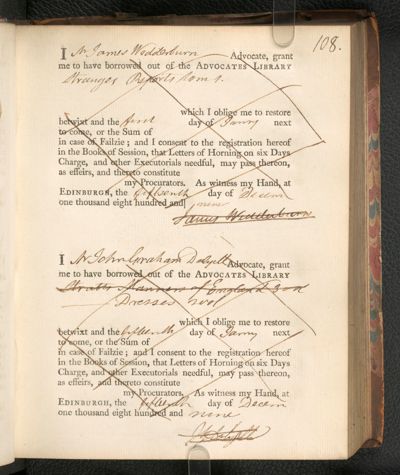 108.
I Mr James Wedderburn Advocate, grant
me to have borrowed out of the ADVOCATES LIBRARY
Stranges Reports tom 1.
which I oblige me to restore
betwixt and the first day of Janry next
to come, or the Sum of
in case of Failzie; and I consent to the registration hereof
in the Books of Session, that Letters of Horning on six Days
Charge, and other Executorials needful, may pass thereon,
as effeirs, and thereto constitute
my Procurators. As witness my Hand, at
EDINBURGH, the fifteenth day of Decem
one thousand eight hundred and nine
James Wedderburn
I Mr John Graham Dalyell Advocate, grant
me to have borrowed out of the ADVOCATES LIBRARY
Strutts Manners of England 3 vol
Dresses 2 vol
which I oblige me to restore
betwixt and the fifteenth day of Janry next
to come, or the Sum of
in case of Failzie; and I consent to the registration hereof
in the Books of Session, that Letters of Horning on six Days
Charge, and other Executorials needful, may pass thereon,
as effeirs, and thereto constitute
my Procurators. As witness my Hand, at
EDINBURGH, the fifteenth day of Decem
one thousand eight hundred and nine
Dalyell